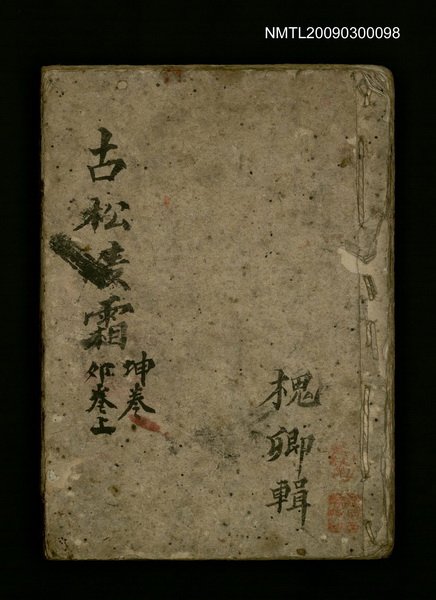 NMTL20090300098
古松凌霜
坤卷
卯卷上
槐卿輯